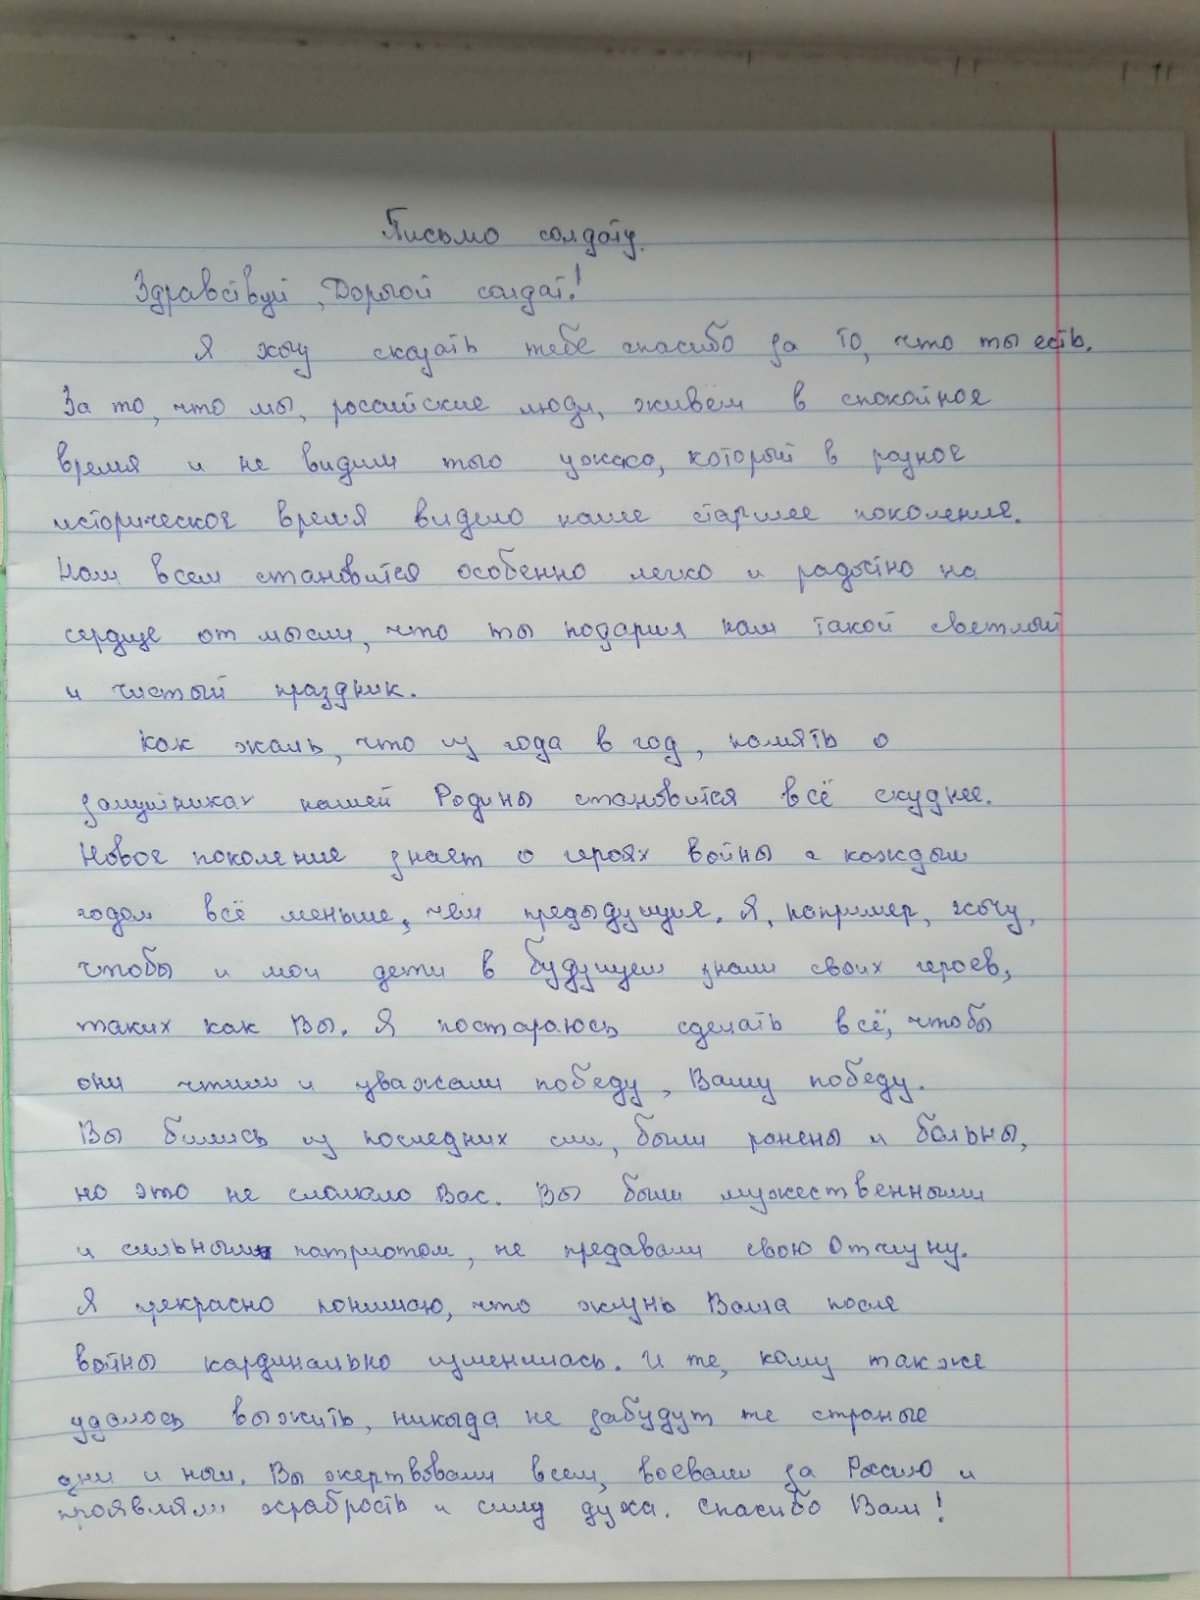 Письмо солдату.
Здравствуй, Дорогой солдат!
Я хочу сказать тебе спасибо за то, что ты есть.
За то, что мы, российские люди, живём в спокойное
время и не видим того ужаса, который в разное
историческое время видело наше старшее поколение.
Нам всем становится особенно легко и радостно на
сердце от мысли, что ты подарил нам такой светлый
и чистый праздник.
Как жаль, что из года в год, память о
защитниках нашей Родины становится всё скуднее.
Новое поколение знает о героях войны с каждым
годом всё меньше, чем предыдущие. Я, например, хочу,
чтобы и мои дети в будущем знали своих героев,
таких как Вы. Я постараюсь сделать всё, чтобы
они чтили и уважали победу, Вашу победу.
Вы бились из последних сил, были ранены и больны,
но это не сломало Вас. Вы были мужественными
и сильными патриотом, не предавали свою Отчизну.
Я прекрасно понимаю, что жизнь Ваша после
войны кардинально изменилась. И те, кому также
удалось выжить, никогда не забудут те страные
дни и ночи. Вы жертвовали всем, воевали за Россию и
проявляли храбрость и силу духа. Спасибо Вам!